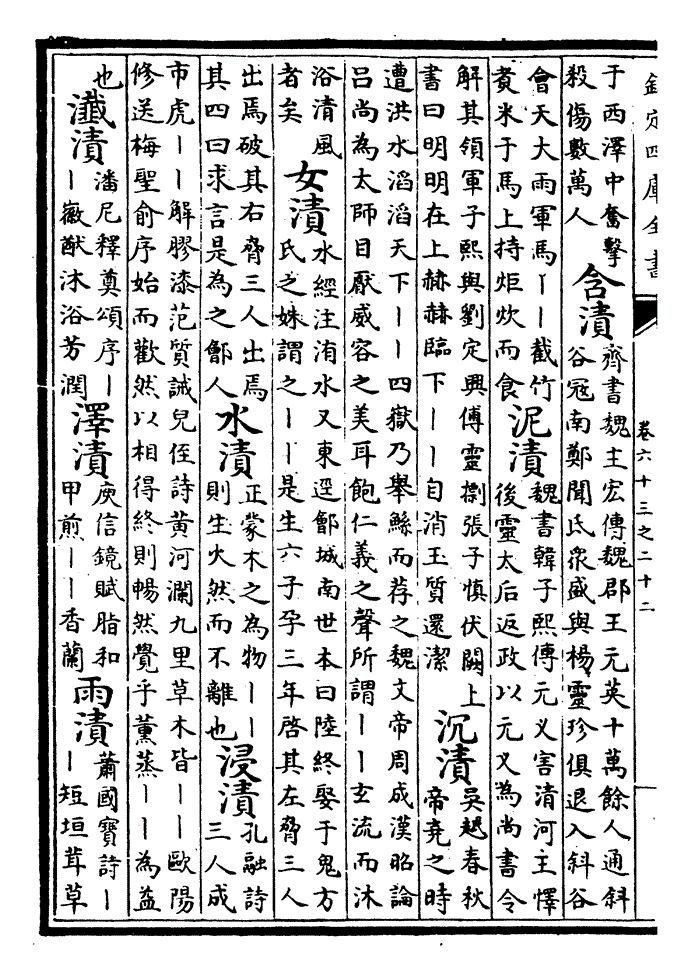 欽定四庫全書
卷六十三之二十二
于西澤中奮擊
殺傷數萬人
含漬
齊書魏主宏傳魏郡王元英十萬餘人通斜
谷冦南鄭聞氏衆盛與楊靈珍俱退入斜谷
會天大雨軍馬丨丨截竹
煑米于馬上持炬炊而食
泥漬
魏書韓子熙傳元乂害清河王懌
後靈太后返政以元乂為尚書令
解其領軍子熙與劉定興傅靈㯹張子慎伏闕上
書曰明明在上赫赫臨下丨丨自消玉質還潔
沉漬
吳越春秋
帝堯之時
遭洪水滔滔天下丨丨四嶽乃舉鯀而荐之魏文帝周成漢昭論
吕尚為太師目厭威容之美耳飽仁義之聲所謂丨丨玄流而沐
浴清風
者矣
女漬
水經注洧水又東逕鄶城南世本曰陸終娶于鬼方
氏之妹謂之丨丨是生六子孕三年啓其左脅三人
出焉破其右脅三人出焉
其四曰求言是為之鄶人
水漬
正蒙木之為物丨丨
則生火然而不離也
浸漬
孔融詩
三人成
市虎丨丨解膠漆范質誡兒侄詩黄河瀾九里草木皆丨丨歐陽
修送梅聖俞序始而歡然以相得終則暢然覺乎薰蒸丨丨為益
也
瀸漬
潘尼釋奠頌序丨
丨徽猷沐浴芳潤
澤漬
庾信鏡賦脂和
甲煎丨丨香蘭
雨漬
蕭國寶詩丨
丨短垣茸草